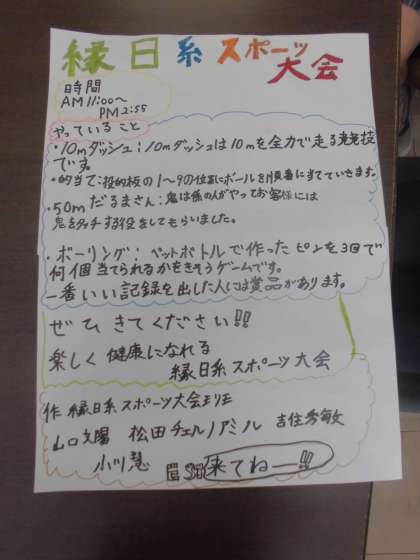 縁日系スポーツ大会
時間
AM 11:00〜
PM 2:55
やっていること
・10mダッシュ：10mダッシュは10mを全力で走る競技
です。
・的当て：投的板の1〜9の位置にボールを順番に当てていきます。
・50mだるまさん：鬼は係の人がやってお客様には
鬼をタッチする役をしてもらいました。
・ボーリング：ペットボトルで作ったピンを3回で
何個当てられるかをきそうゲームです。
一番いい記録を出した人には賞品があります。
ぜひきてください!!
楽しく健康になれる
縁日系スポーツ大会
作 縁日系スポーツ大会
山口 松田チェルノアミル 吉住秀敏
小川慧
来てねー!!